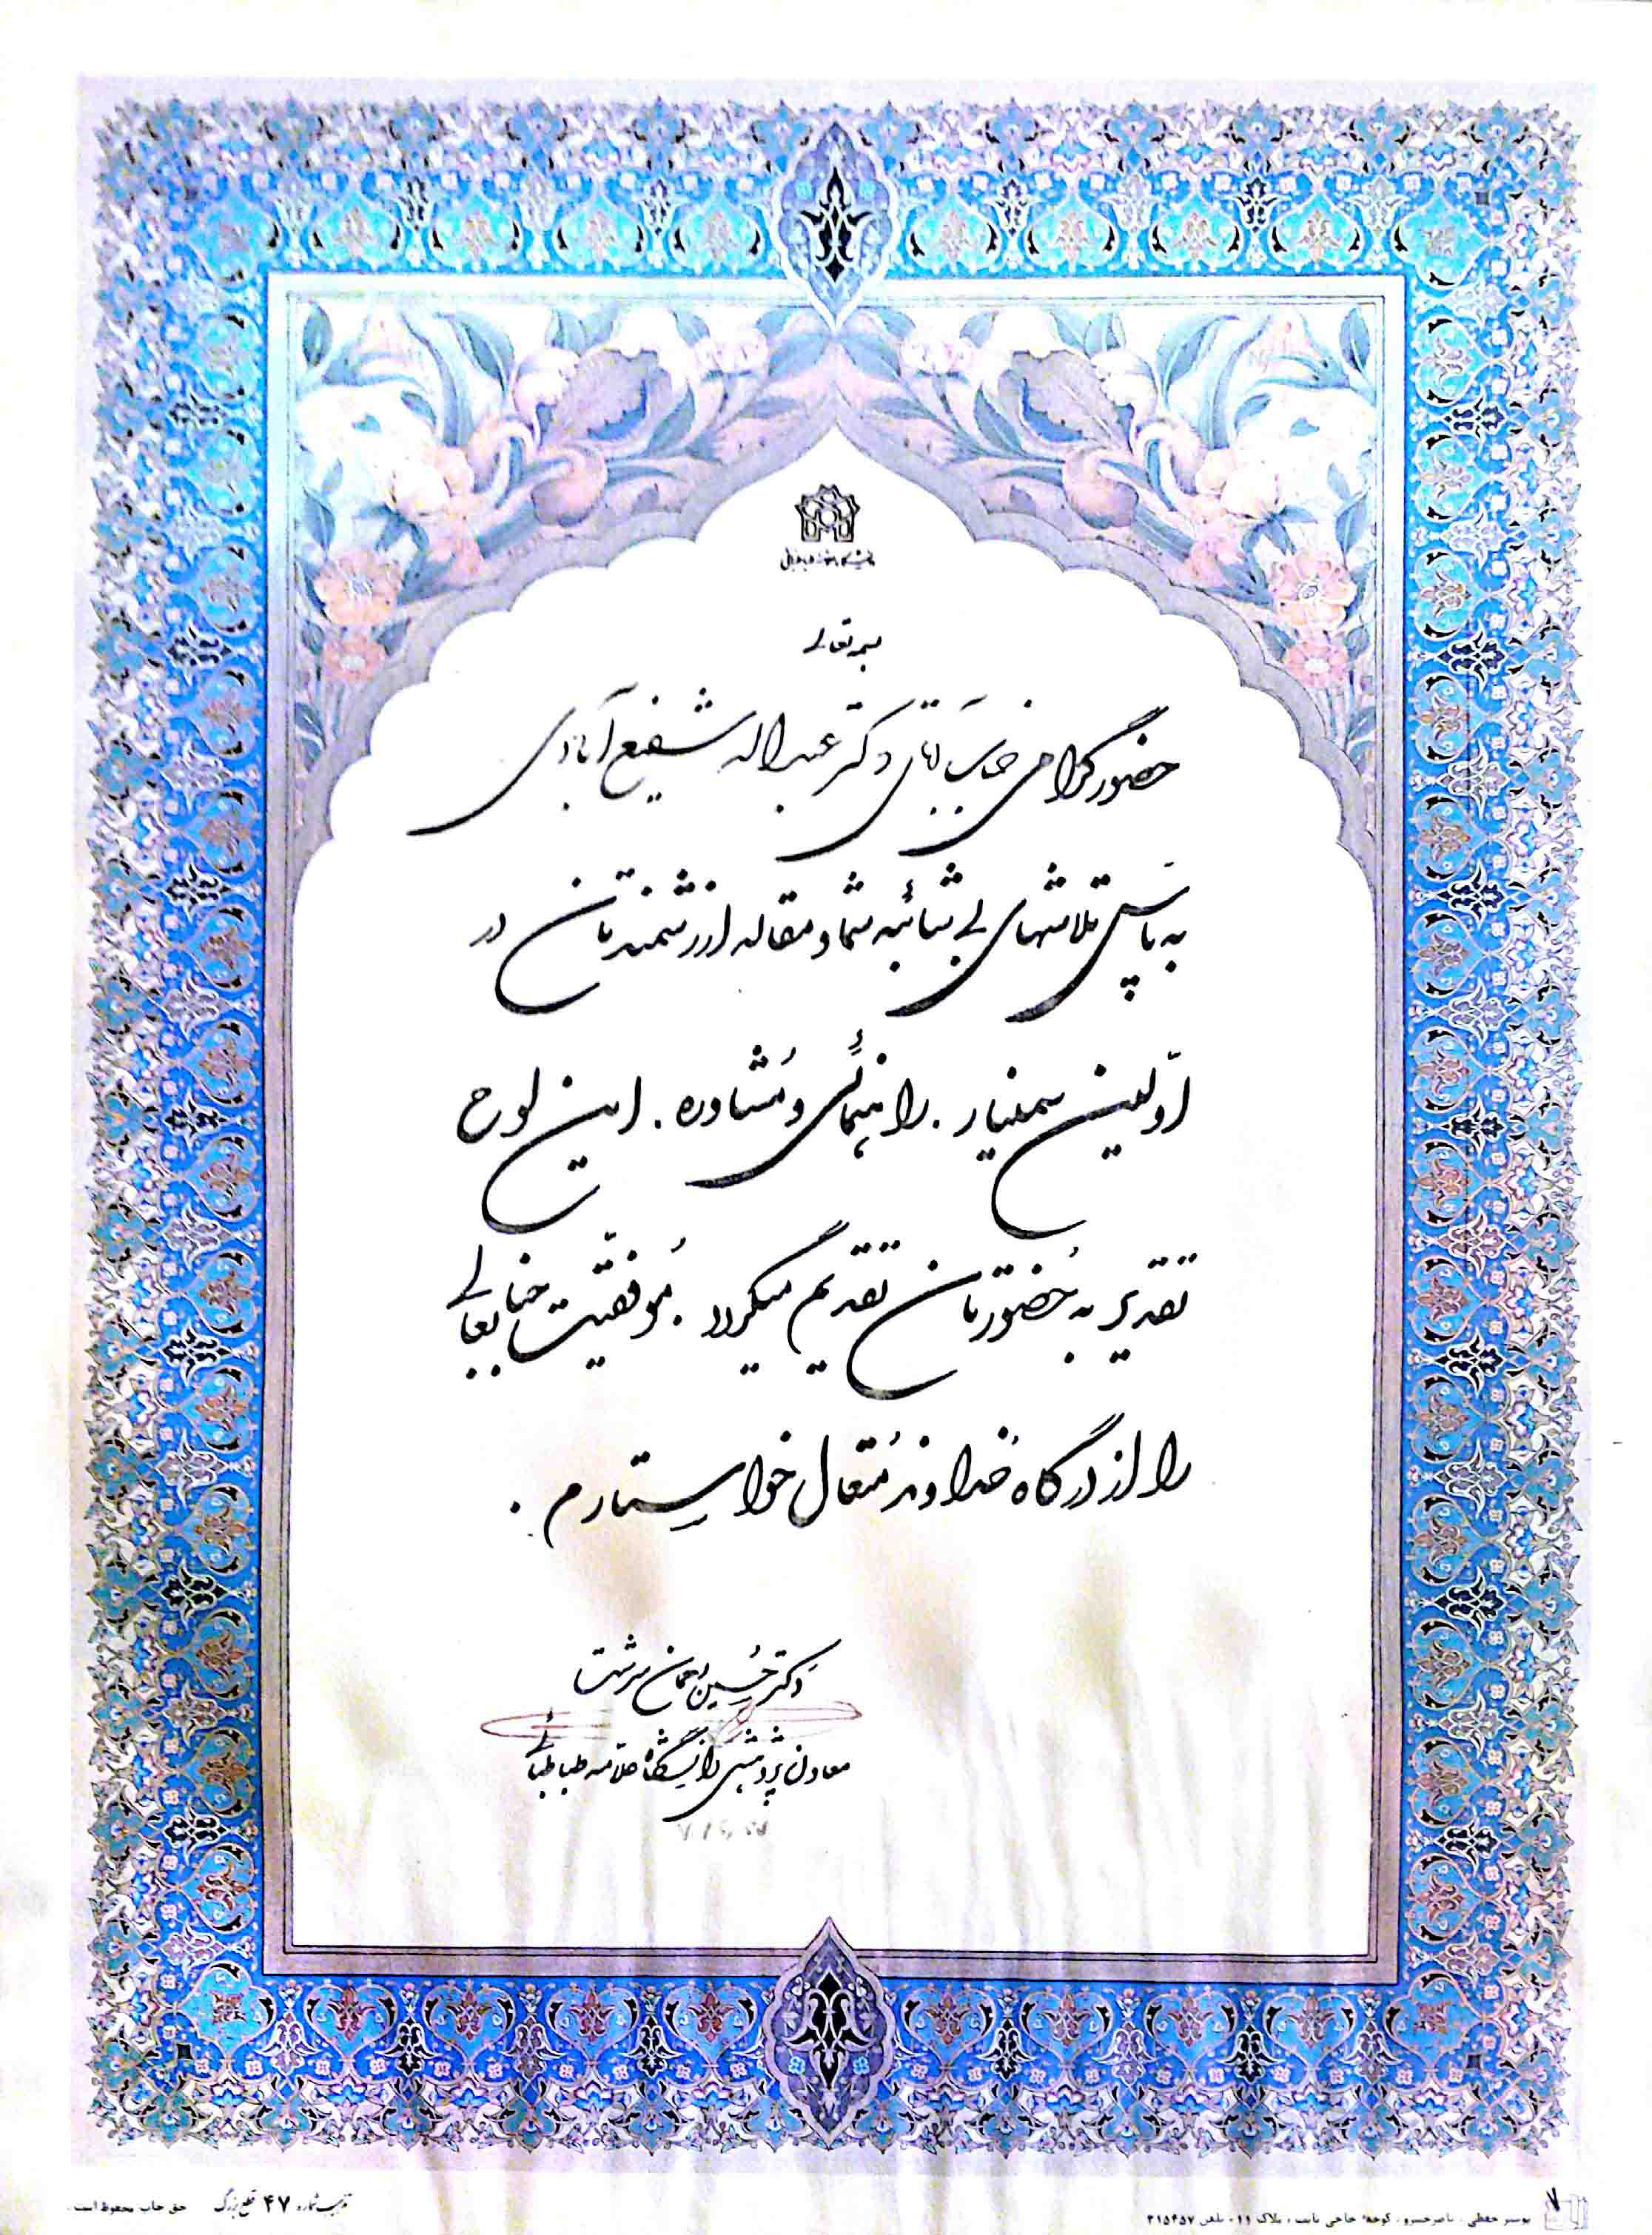 دانشگاه علامه طباطبائی
بسمه تعالی
حضور گرامی جناب آقای دکتر عبداله شفیع آبادی
به پاس تلاشهای بی شائبه شما و مقاله ارزشمندتان در
اوّلین سمینار . راهنمائی و مُشاوره . این لوح
تقدیر به حُضورتان تقدیم میگردد . مُوفقیّت جنابعالی
را از درگاه خُداوند مُتعال خواستارم .
دکتر حُسین رحمان سرشت
معاون پژوهشی دانشگاه علاّمه طباطبائی
شماره ۴۷ قطع بزرگ حق چاپ محفوظ است
پوستر حفظی ، ناصرخسرو ، کوچه حاجی نایب ، پلاک ۱۱ - تلفن ۳۱۵۴۵۷